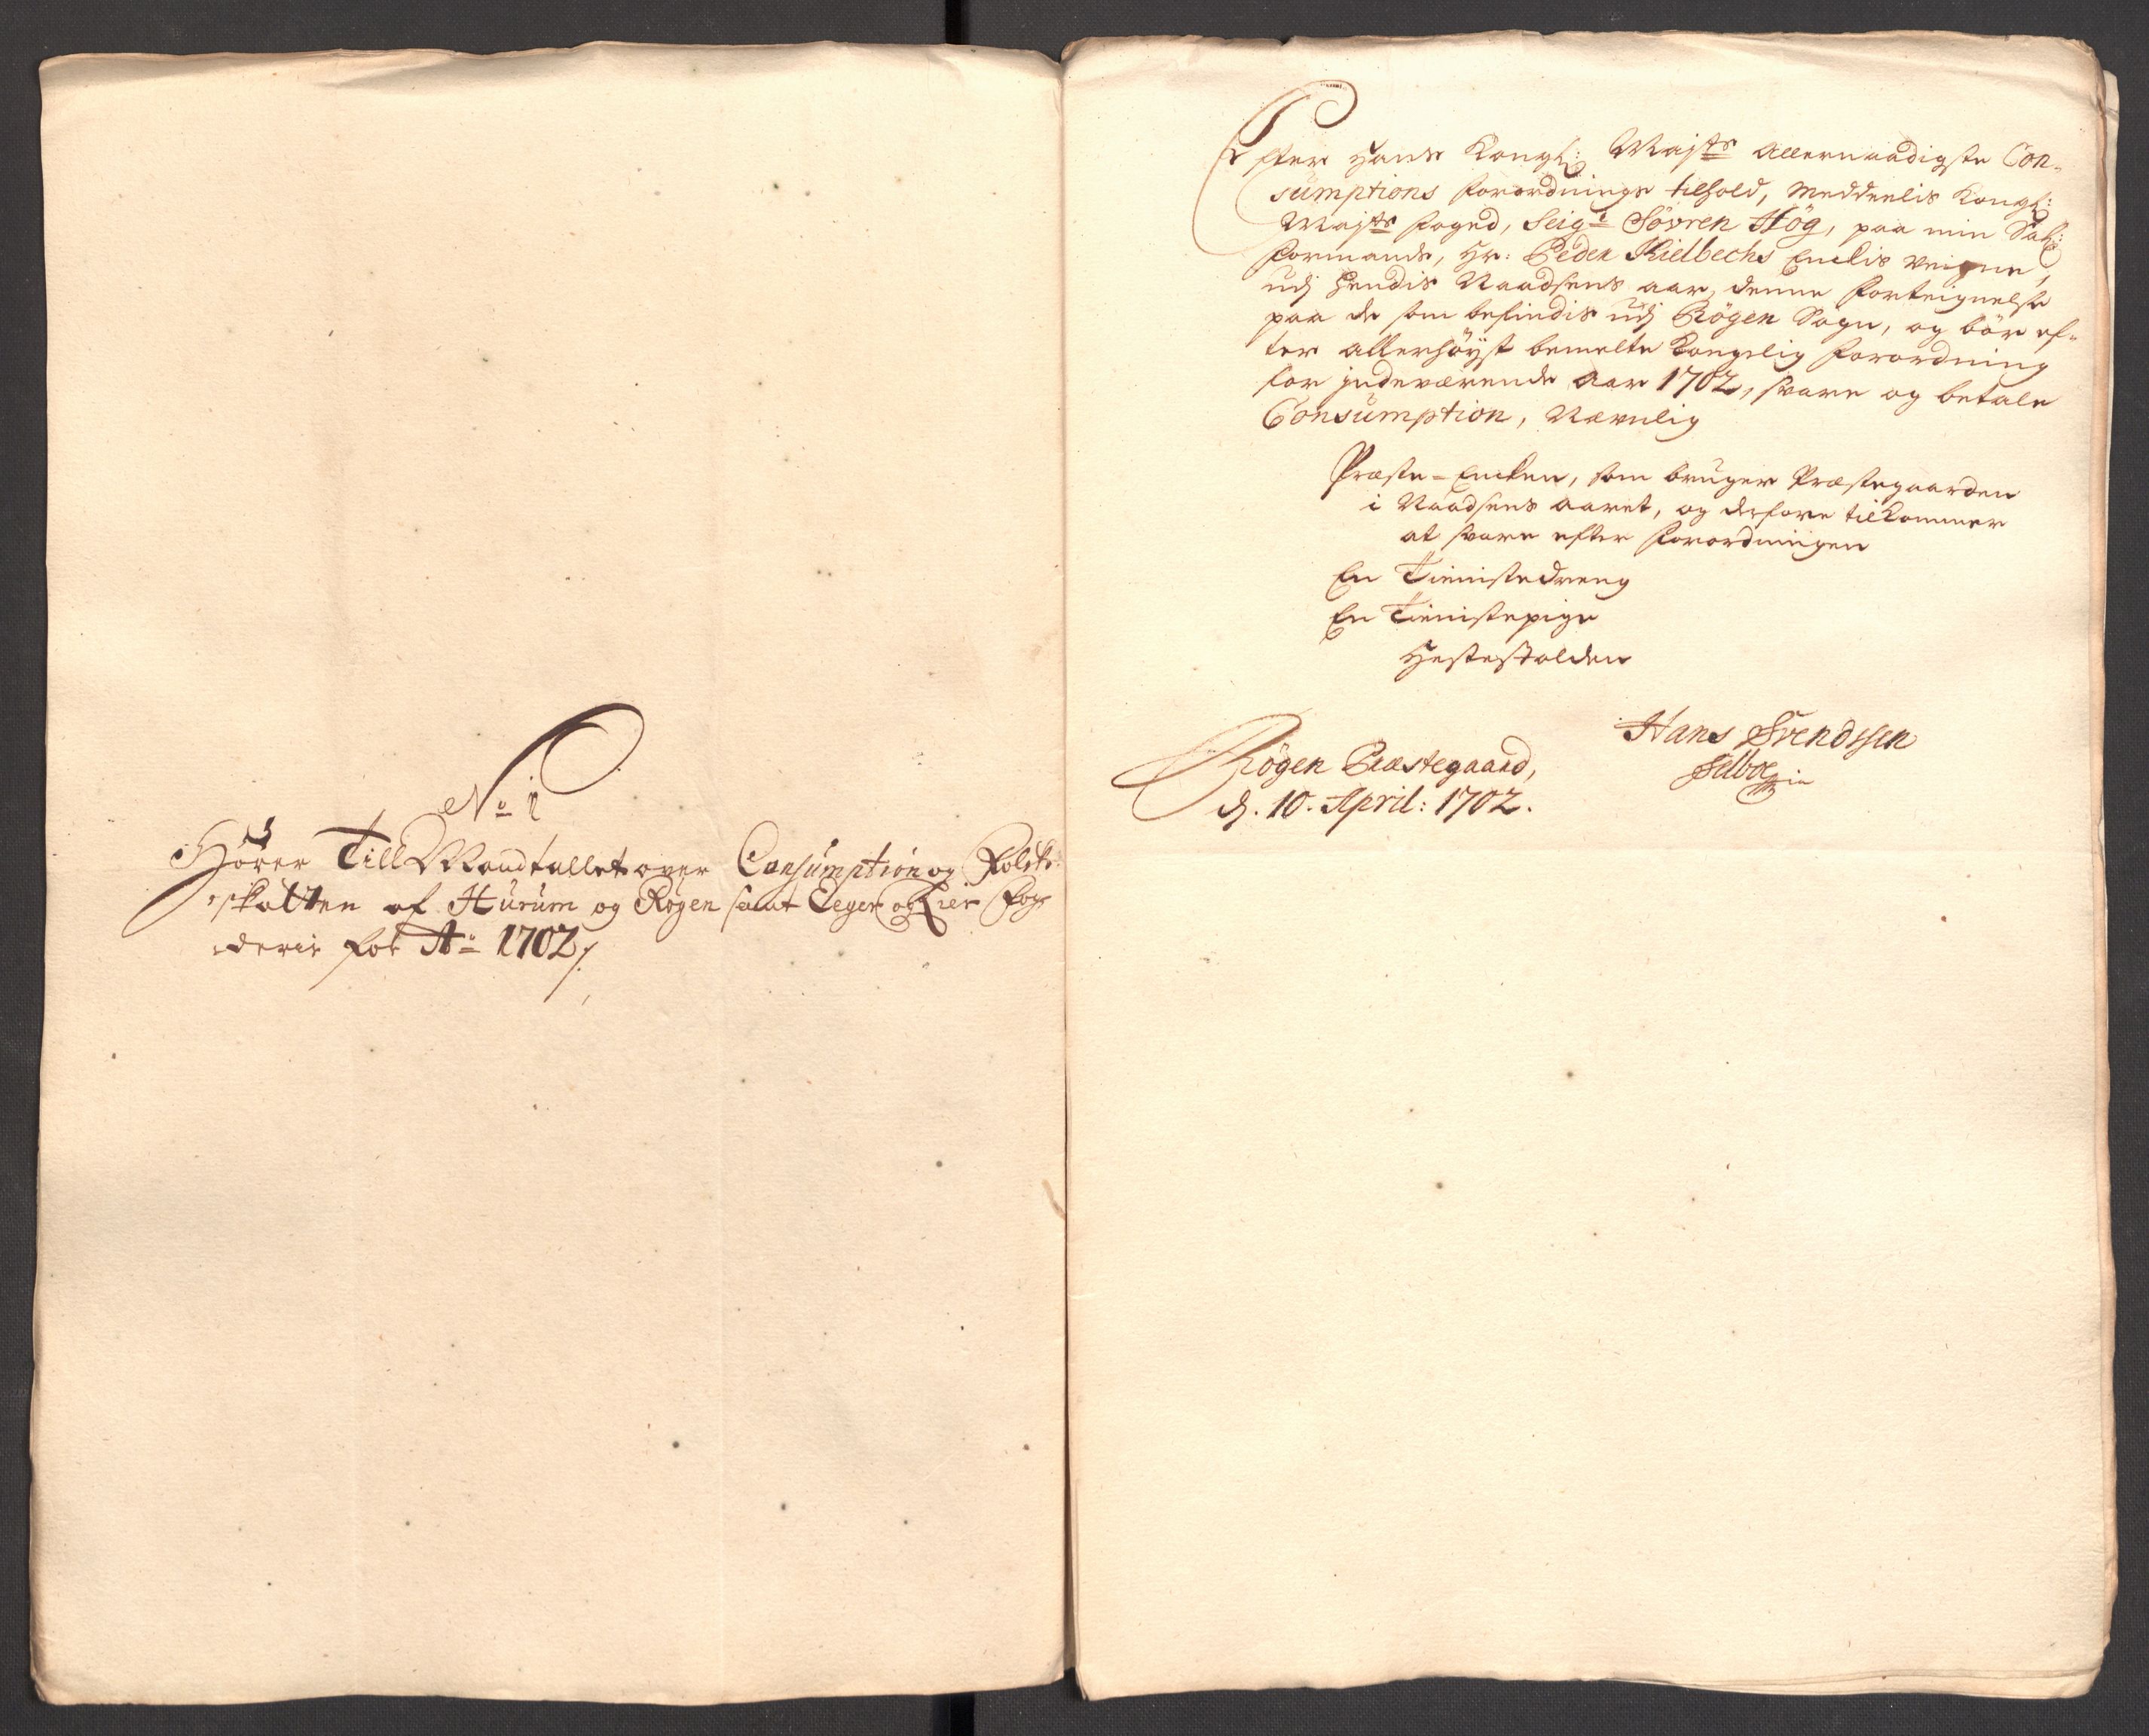 No 1
Hörer Till Mandtallet over Consumption og Folcke
skatten af Hurum og Rögen samt Eeger og Lier Fog
derie for Ao 1702 /.
Efter Hans Kongl: Majts allernaadigste Con-
sumptions forordnings tilhold, meddeelis Kongl:
Majts foged, Seigr Sövren Hög, paa min Sal:
formands, Hr: Peder Kielbechs Enckis veigne,
udj hendis Naadsens aar, denne forteignelse
paa de som befindis udj Rögen Sogn, og bör ef-
ter allerhöyst bemelte Kongelig forordning
for indeværende Aar 1702, svare og betale
Consumption, Nævnlig
Præste-Encken, som bruger Præstegaarden
i Naadsens aaret, og derfore tilkommer
at svare efter forordningen
En Tienistedreng
En Tienistepige
Hesteskolden
Hans Svendssen
Selboe
Rögen Præstegaard,
d. 10. April: 1702.